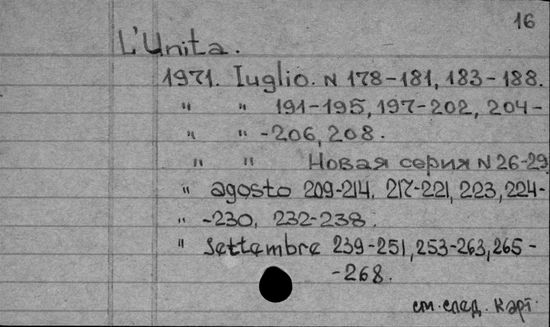 16
L'Unita.
1971. Iuglio. N 178-181, 183-188.
" " 191-195, 197-202, 204-
" " -206, 208.
" " Новая серия N 26-29
" agosto 209-214. 217-221, 223, 224-
" -230, 232-238.
" settembre 239-251, 253-263, 265-
-268.
см. след. карт.